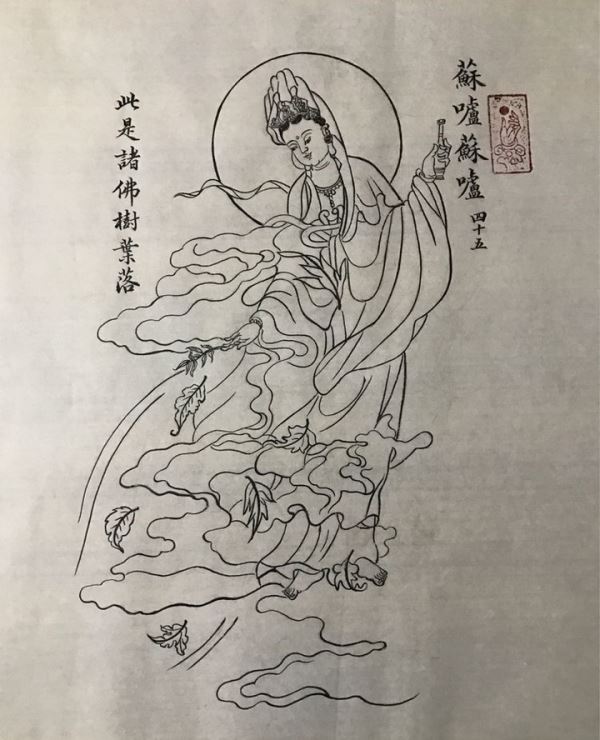 蘇嚧蘇嚧 四十五
此是諸佛樹葉落